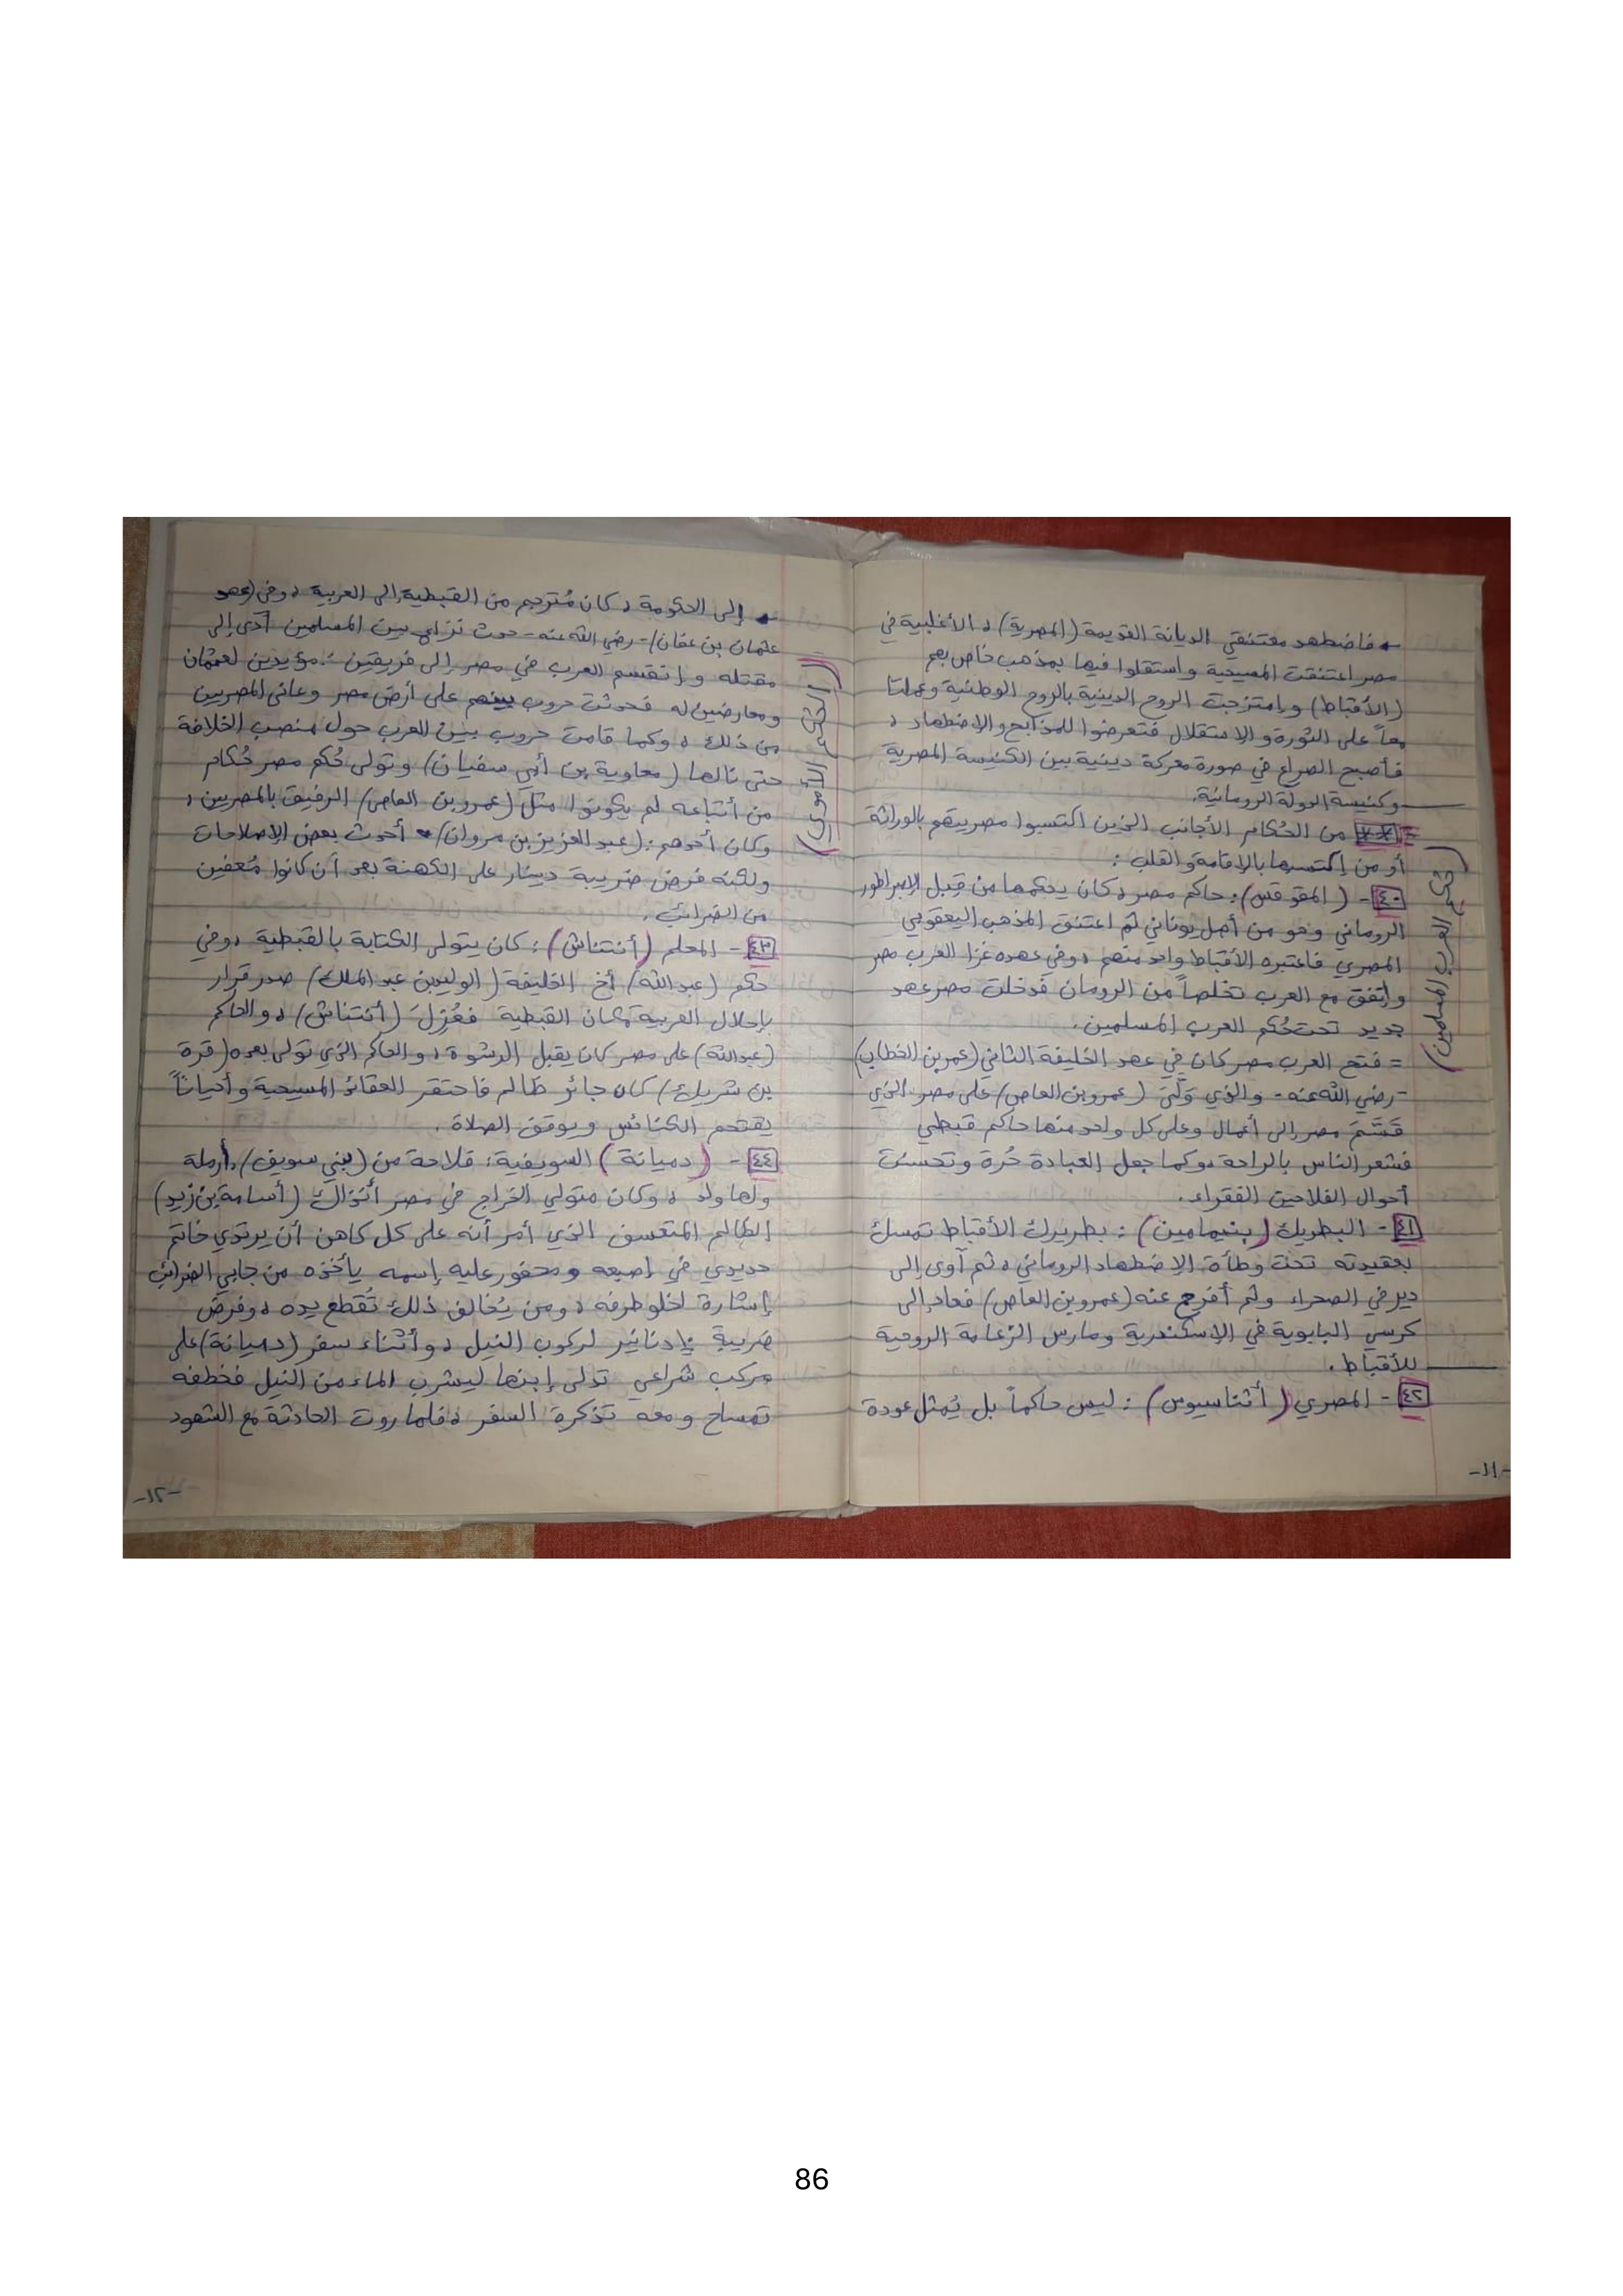 ← فاضطهد معتنقي الديانة القديمة (المصرية) ، الأغلبية في
مصر اعتنقت المسيحية واستقلوا فيها بمذهب خاص بهم
(الأقباط) وامتزجت الروح الدينية بالروح الوطنية وعملتا
معاً على الثورة والاستقلال فتعرضوا للمذابح والإضطهاد ،
فأصبح الصراع في صورة معركة دينية بين الكنيسة المصرية
وكنيسة الدولة الرومانية.
= ** من الحُكام الأجانب الذين اكتسبوا مصريتهم بالوراثة
أو من إكتسبها بالإقامة والقلب :
٤٠- (المقوقس): حاكم مصر ، كان يحكمها من قِبل الإمبراطور
الروماني وهو من أصل يوناني ثم اعتنق المذهب اليعقوبي
المصري فاعتبره الأقباط واحد منهم ، وفي عهده غزا العرب مصر
واتفق مع العرب تخلصاً من الرومان فدخلت مصر عهد
جديد تحت حُكم العرب المسلمين.
(حكم العرب المسلمين)
= فتح العرب مصر كان في عهد الخليفة الثاني (عمر بن الخطاب)
-رضي الله عنه- والذي وَلَّىَ (عمرو بن العاص) على مصر الذي
قسَّمَ مصر إلى أعمال وعلى كل واحد منها حاكم قبطي
فشعر الناس بالراحة ، وكما جعل العبادة حُرة وتحسنت
أحوال الفلاحين الفقراء.
٤١- البطريك (بنيامين) : بطريرك الأقباط تمسك
بعقيدته تحت وطأة الإضطهاد الروماني ، ثم آوى إلى
دير في الصحراء وثم أفرج عنه (عمرو بن العاص) فعاد إلى
كرسي البابوية في الإسكندرية ومارس الزعامة الروحية
للأقباط.
٤٢- المصري (أثناسيوس) : ليس حاكماً بل يُمثل عودة
-١١-
← إلى الحكومة ، كان مُترجم من القبطية إلى العربية ، وفي (عهد
عثمان بن عفان)-رضي الله عنه- حدث نزاع بين المسلمين أدى إلى
مقتله وإنقسم العرب في مصر إلى فريقين : مؤيدين لعثمان
ومعارضين له فحدثت حروب بينهم على أرض مصر وعانى المصريين
من ذلك ، وكما قامت حروب بين العرب حول منصب الخلافة
(الحكم الأموي)
حتى نالها (معاوية بن أبي سفيان) وتولى حُكم مصر حُكام
من أتباعه لم يكونوا مثل (عمرو بن العاص) الرفيق بالمصريين ،
وكان أحدهم : (عبد العزيز بن مروان) أحدث بعض الإصلاحات
ولكنه فرض ضريبة دينار على الكهنة بعد أن كانوا مُعفين
من الضرائب.
٤٣- المعلم (أنتناش) : كان يتولى الكتابة بالقبطية ، وفي
حكم (عبد الله) أخ الخليفة (الوليد بن عبد الملك) صدر قرار
بإحلال العربية مكان القبطية فعُزلَ (أنتناش) ، والحاكم
(عبد الله) على مصر كان يقبل الرشوة ، والحاكم الذي تولى بعده (قرة
بن شريك) كان جائر ظالم فاحتقر العقائد المسيحية وأحياناً
يقتحم الكنائس ويوقف الصلاة.
٤٤- (دميانة) السويفية : فلاحة من (بني سويف) ، أرملة
ولها ولد ، وكان متولي الخراج في مصر أنذاك (أسامة بن زيد)
الظالم المتعسف الذي أمر أنه على كل كاهن أن يرتدي خاتم
حديدي في إصبعه ومحفور عليه إسمه يأخذه من جابي الضرائب
إشارة لخلو طرفه ، ومن يُخالف ذلك تُقطع يده ، وفرض
ضريبة ١٠ دنانير لركوب النيل ، وأثناء سفر (دميانة) على
مركب شراعي تدلى إبنها ليشرب الماء من النيل فخطفه
تمساح ومعه تذكرة السفر ، فلما روت الحادثة مع الشهود
-١٢-
86